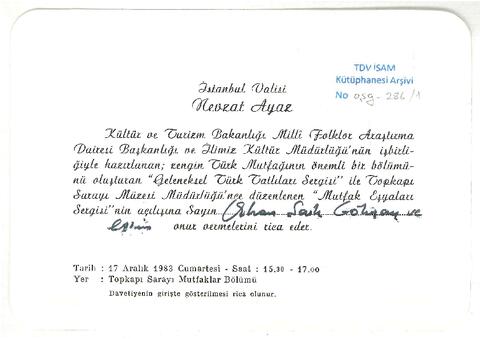 TDV İSAM
Kütüphanesi Arşivi
No OŞG-286/1
İstanbul Valisi
Nevzat Ayaz
Kültür ve Turizm Bakanlığı Milli Folklor Araştırma
Dairesi Başkanlığı ve İlimiz Kültür Müdürlüğü'nün işbirli-
ğiyle hazırlanan; zengin Türk Mutfağının önemli bir bölümü-
nü oluşturan "Geleneksel Türk Tatlıları Sergisi" ile Topkapı
Sarayı Müzesi Müdürlüğü'nce düzenlenen "Mutfak Eşyaları
Sergisi"nin açılışına Sayın Orhan Şaik Gökyay ve
eşinin onur vermelerini rica eder.
Tarih : 17 Aralık 1983 Cumartesi - Saat : 15.30 - 17.00
Yer : Topkapı Sarayı Mutfaklar Bölümü
Davetiyenin girişte gösterilmesi rica olunur.